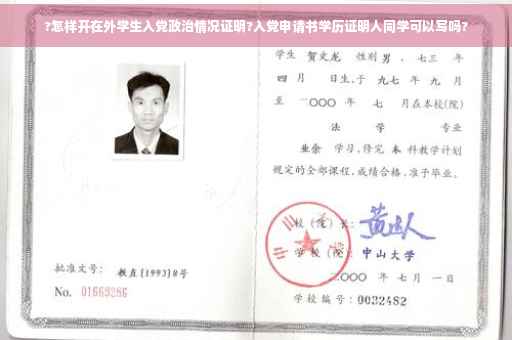 ?怎样开在外学生入党政治情况证明?入党申请书学历证明人同学可以写吗?
学生 贺文龙 性别 男 , 七三 年
四 月 日生,于 九七 年 九 月
至 二〇〇〇 年 七 月在本校(院)
法 学 专业
业余 学习,修完 本 科教学计划
规定的全部课程,成绩合格,准予毕业。
校(院)长:
学校(院): 中山大学
二〇〇〇 年 七 月 一 日
学校编号: 0032482
批准文号: 教直[1993]8号
No. 01669286